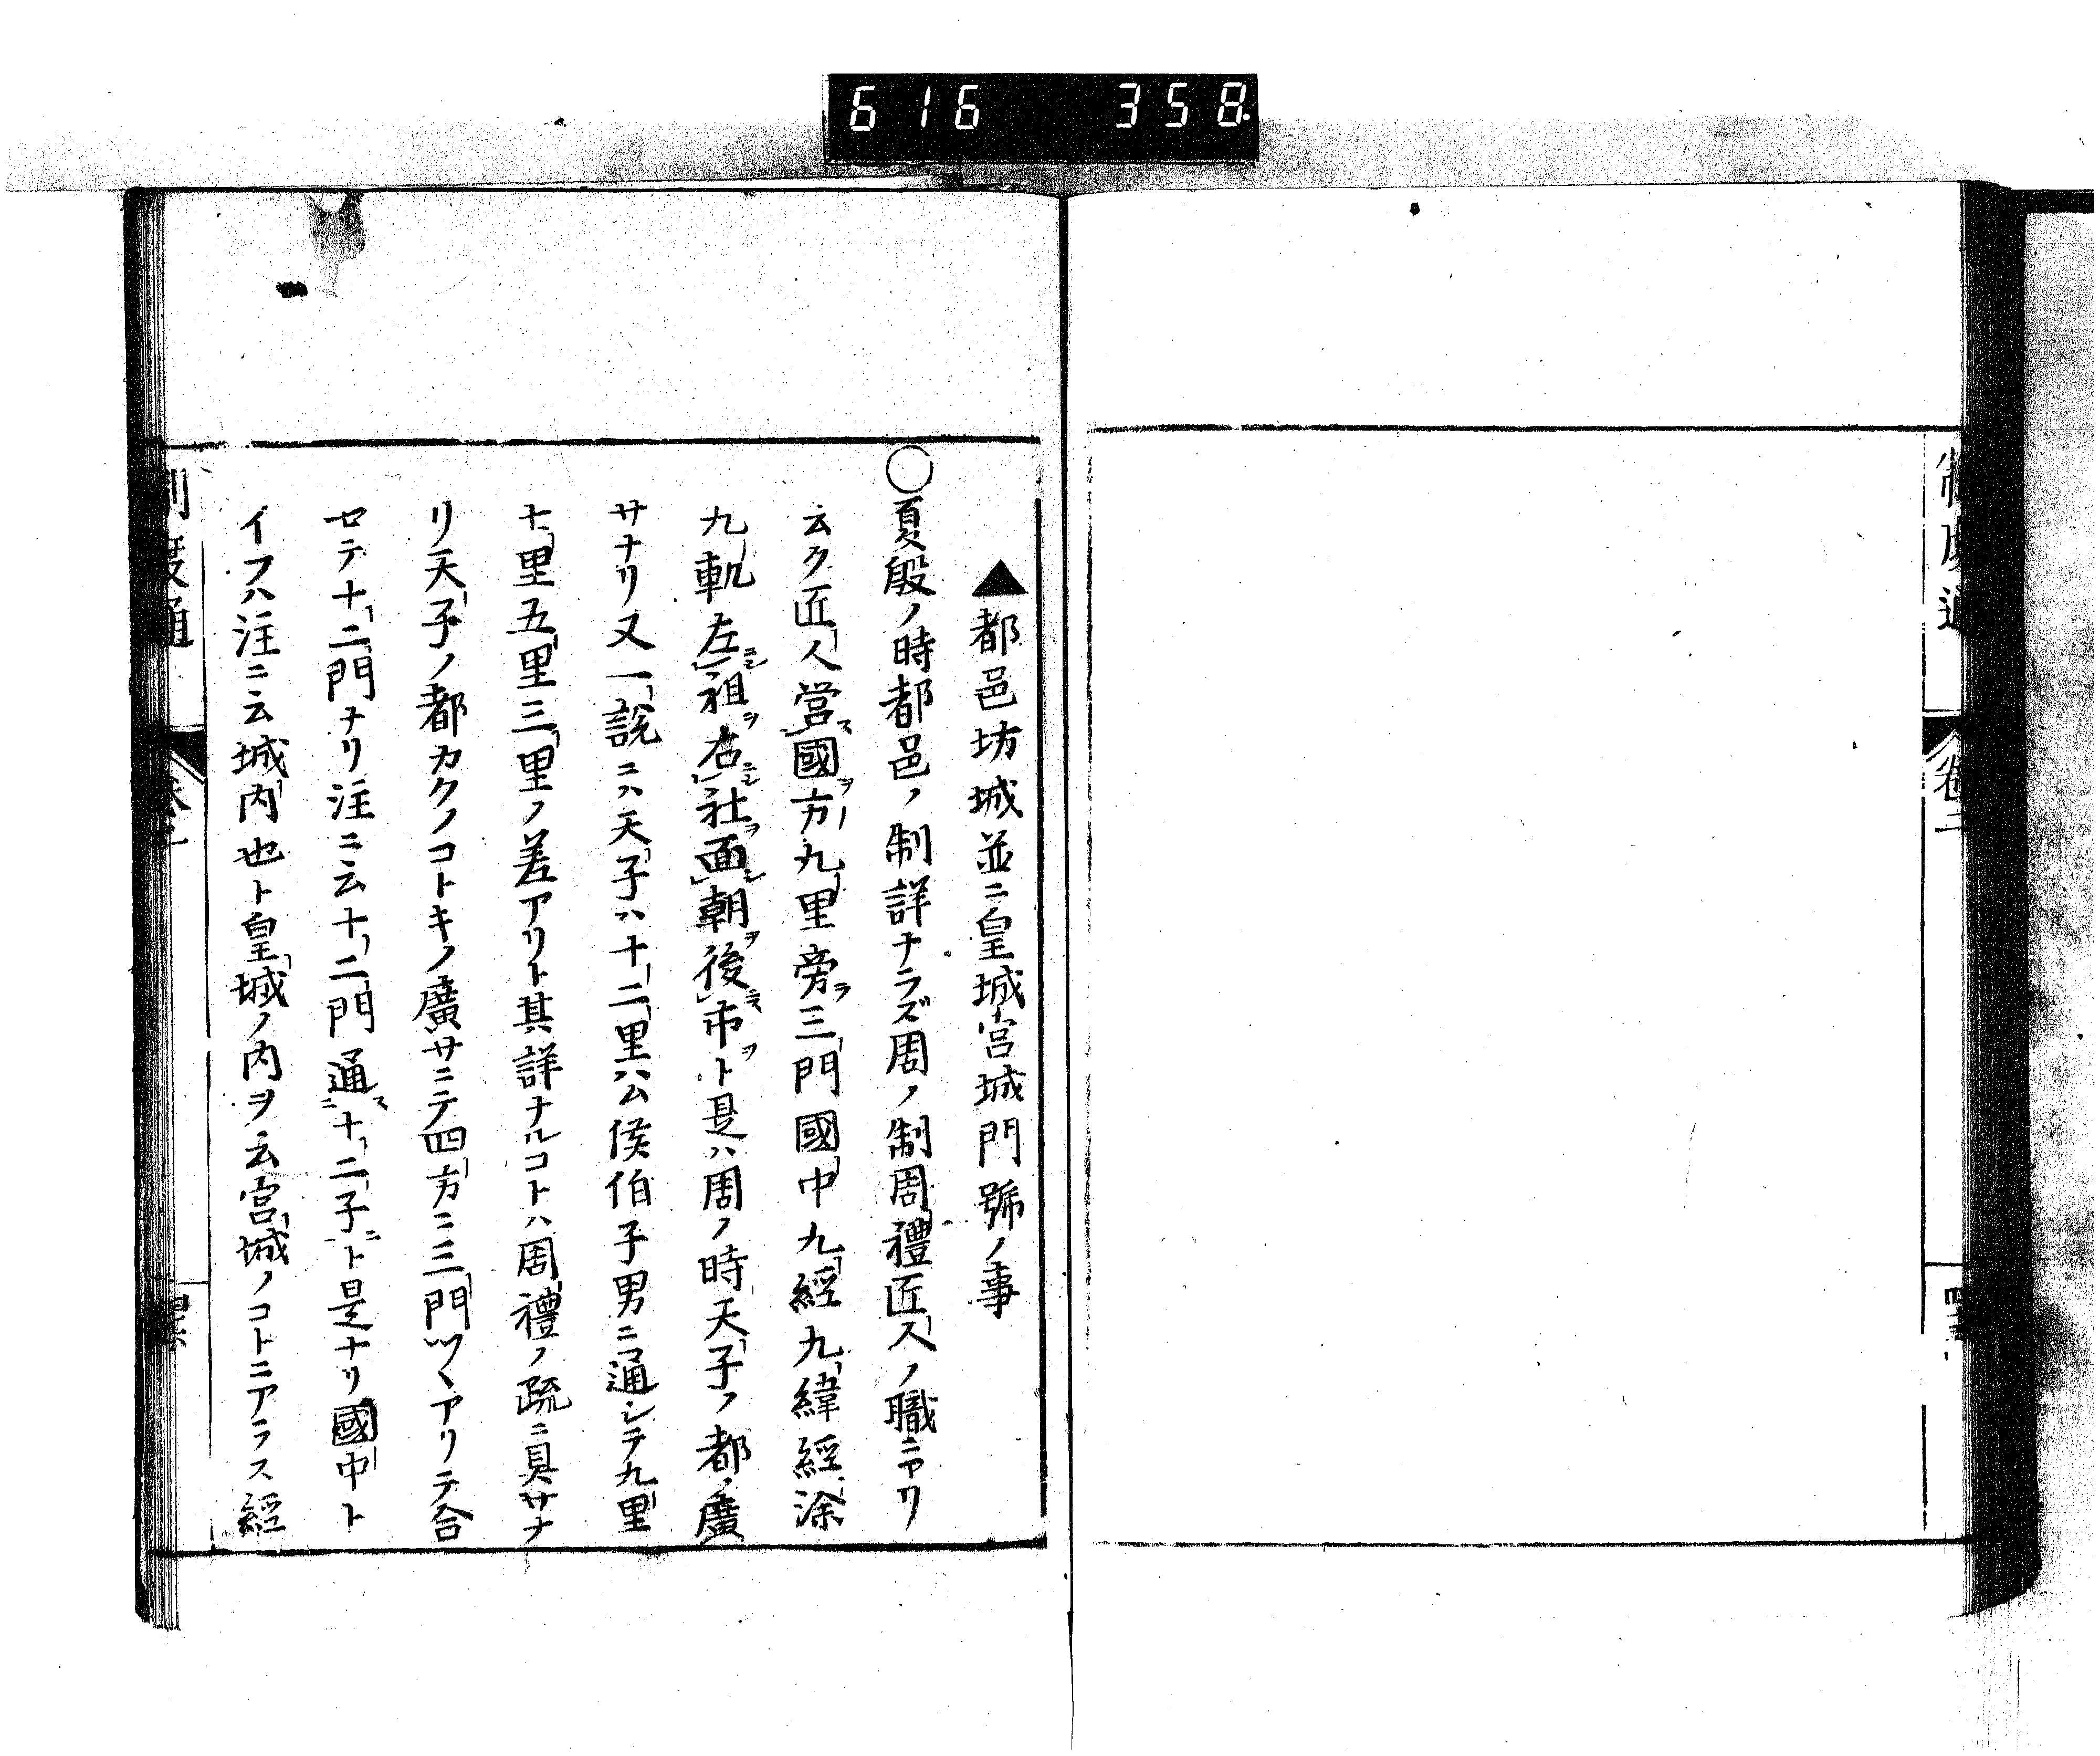 616 358
制度通
卷二
▲都邑坊城並ニ皇城宮城門號ノ事
○夏殷ノ時都邑ノ制詳ナラズ周ノ制周禮匠人ノ職ニアリ
云ク匠人營國方九里旁三門國中九經九緯經涂
九軌左祖右社面朝後市ト是ハ周ノ時天子ノ都ノ廣
サナリ又一說ニハ天子ハ十二里公侯伯子男ニ通シテ九里
七里五里三里ノ差アリト其詳ナルコトハ周禮ノ疏ニ具サナ
リ天子ノ都カクノコトキノ廣サニテ四方ニ三門ツヽアリテ合
セテ十二門ナリ注ニ云十二門通十二子ト是ナリ國中ト
イフハ注ニ云城內也ト皇城ノ內ヲ云宮城ノコトニアラス經
制度通